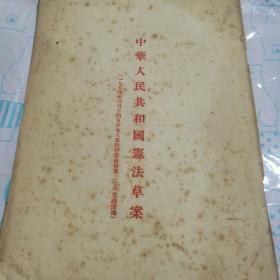 中華人民共和國憲法草案
(一九五四年六月十四日中央人民政府委員會第三十次會議通過)